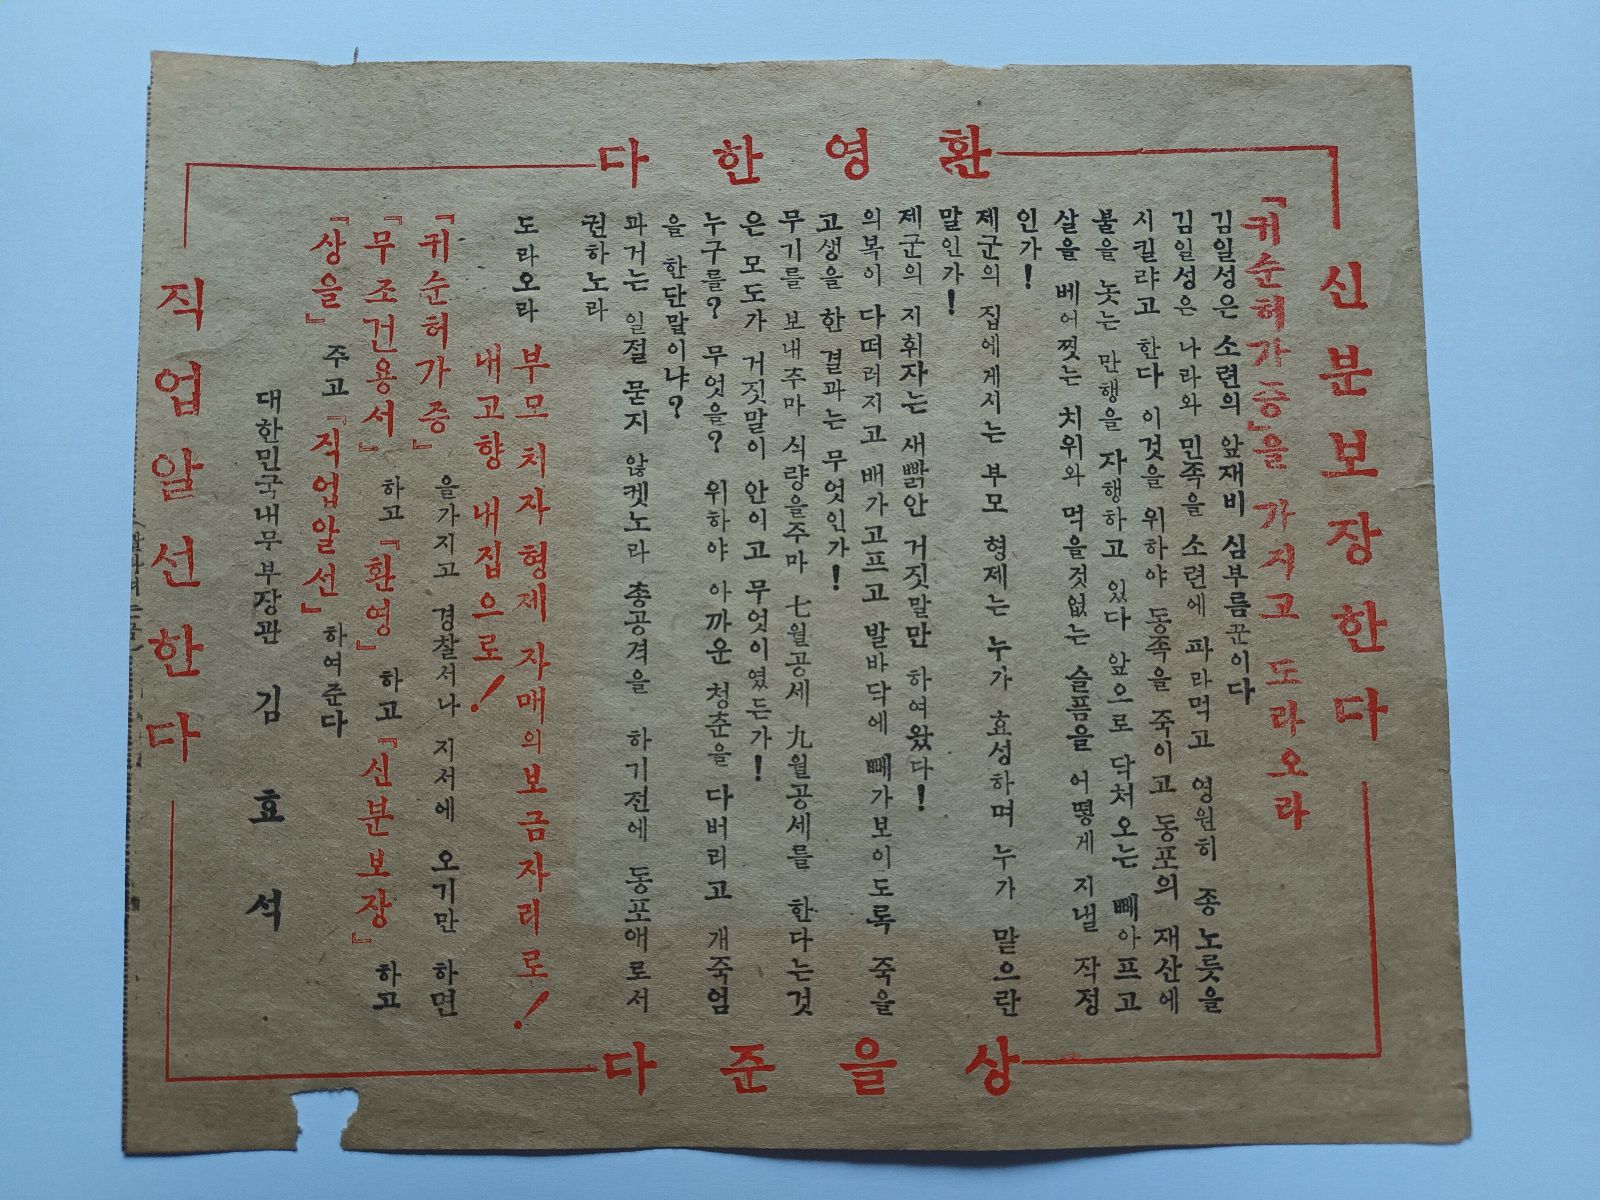 환영한다
신분보장한다
「귀순허가증」을 가지고 도라오라
김일성은 소련의 앞재비 심부름꾼이다
김일성은 나라와 민족을 소련에 파라먹고 영원히 종노릇을
시킬랴고 한다 이것을 위하야 동족을 죽이고 동포의 재산에
불을 놋는 만행을 자행하고 있다 앞으로 닥처오는 뼈아프고
살을 베어찟는 치위와 먹을것없는 슬픔을 어떻게 지낼 작정
인가!
제군의 집에게시는 부모 형제는 누가 효성하며 누가 맡으란
말인가!
제군의 지휘자는 새빩안 거짓말만 하여왔다!
의복이 다떠러지고 배가고프고 발바닥에 뼈가보이도록 죽을
고생을 한 결과는 무엇인가!
무기를 보내주마 식량을주마 七월공세 九월공세를 한다는것
은 모도가 거짓말이 안이고 무엇이였든가!
누구를? 무엇을? 위하야 아까운 청춘을 다버리고 개죽엄
을 한단말이냐?
과거는 일절 묻지 않켓노라 총공격을 하기전에 동포애로서
권하노라
도라오라 부모 처자 형제 자매의보금자리로!
내고향 내집으로!
「귀순허가증」을가지고 경찰서나 지서에 오기만 하면
「무조건용서」하고「환영」하고「신분보장」하고
「상을」주고「직업알선」하여준다
대한민국내무부장관 김효석
직업알선한다
상을준다